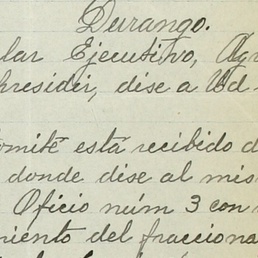 Durango.
lar Ejecutivo, Agr
presidir, dise a Ud
omité está recibido d
donde dise al mis
Oficio núm 3 con
miento del fracciona